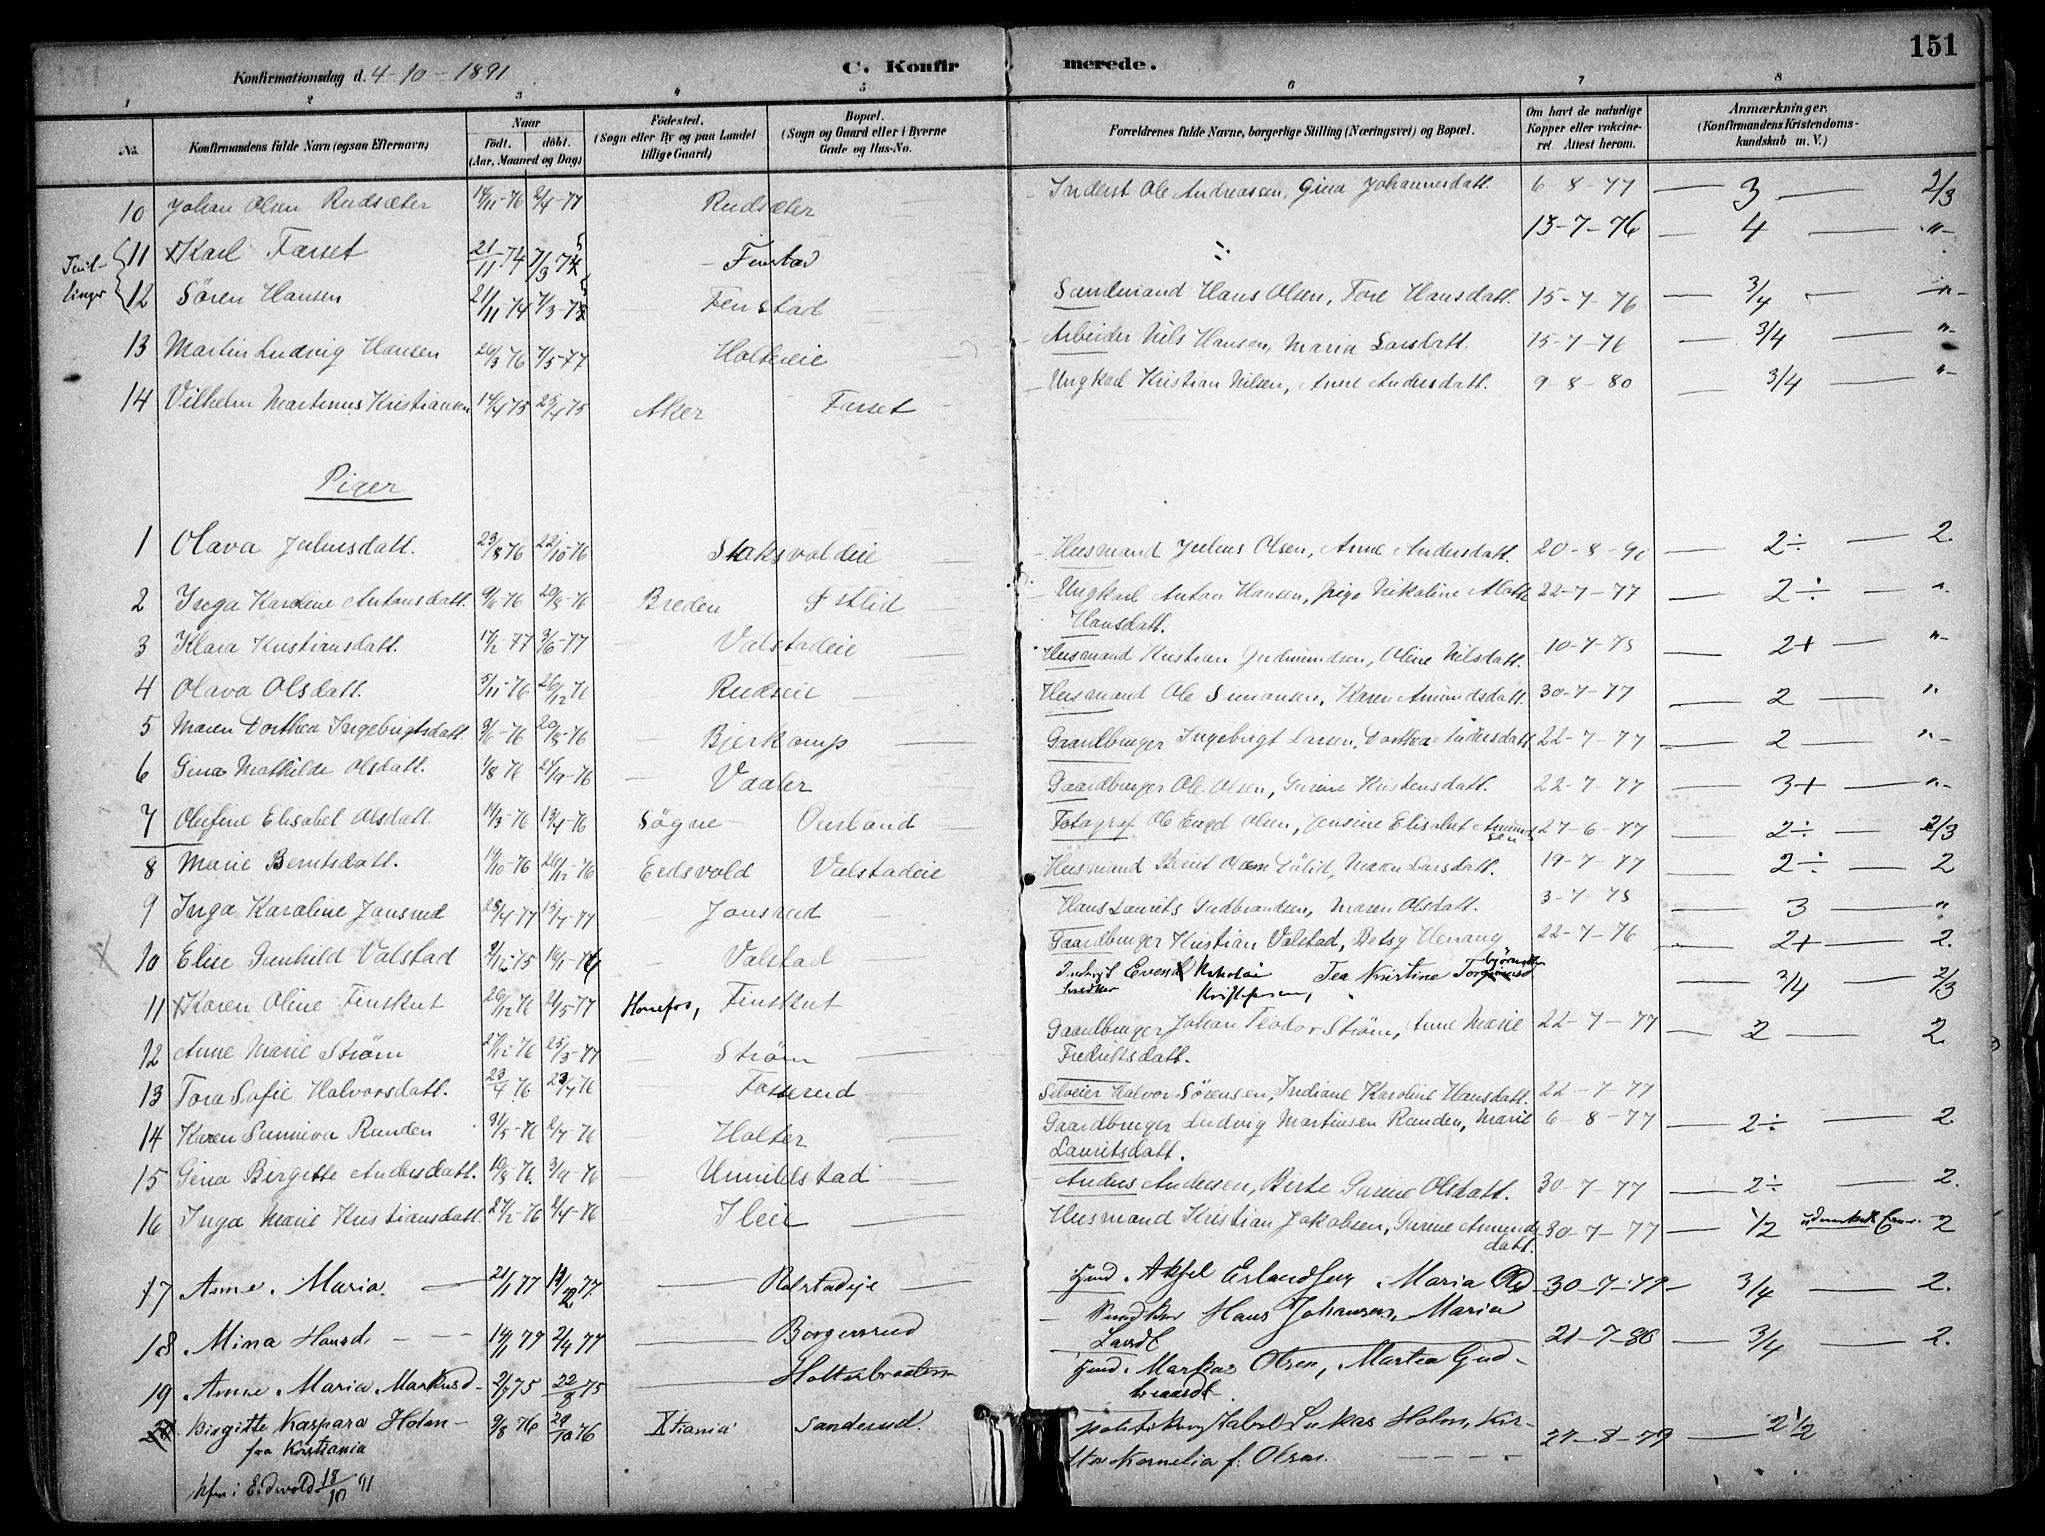 151
Konfirmationsdag d. 4-10-1891 C. Konfirmerede.
1 2 3 4 5 6 7 8
No. Konfirmandens fulde Navn (ogsaa Efternavn) Naar födt. döbt. (Aar, Maaned og Dag) Födested. (Sogn eller By og paa Landet tillige Gaard) Bopæl. (Sogn og Gaard eller i Byerne Gade og Hus-No. Forældrenes fulde Navne, borgerlige Stilling (Næringsvei) og Bopæl. Om havt de naturlige Kopper eller vakcineret. Attest herom. Anmærkninger. (Konfirmandens Kristendomskundskab m. V.)
10 Johan Olsen Rudsæter 2/4-77 Rudsæter Inderst Ole Andreassen, Gina Johannesdatt. 6-8-77 3 2/3
11 Karl Farset 21/11 74 7/3 75 Fenstad 13-7-76 4 "
12 Sören Hansen 21/11 74 7/3-75 Fenstad Sandmand Hans Olsen, Tore Hansdatt. 15-7-76 3/4 "
13 Martin Ludvig Hansen 26/3 76 Holteeie Arbeider Nils Hansen, Maria Larsdatt. 15-7-76 3/4 "
14 Vilhelm Martinus Kristiansen 25/4 75 Aker Farset Ungkarl Kristian Nilsen, Anne Andersdatt. 9-8-80 3/4 "
Piger
1 Olava Juliusdatt. 23/8 76 22/10-76 Husmand Julius Olsen, Anne Andersdatt. 2÷ 2.
2 Inga Karoline Antonsdatt. 9/6-76 20/8-76 Breden Østlid Ungkarl Anton Hansen, pige Nikoline 22-7-77 2÷ "
Hansdatt.
3 Klara Kristiansdatt. 3/6-77 Valstadeie Husmand Kristian Gudmundsen, Oline Nilsdatt. 2+ "
4 Olava Olsdatt. 5/11-76 26/12 76 Rudseie Husmand Ole Simonsen, Karen Amundsdatt. 30-7-77 2 "
5 Maren Dorthea Ingebrigtsdatt. 9/6-76 20/8-76 Bjerkamp Gaardbruger Ingebrigt Larsen, Dorthea Andersdatt. 22-7-77 2 "
6 Gina Mathilde Olsdatt. 1/8 76 Vaaler Gaardbruger Ole Olsen, Gurine Kristensdatt. 22-7-77 3+ "
7 Olufine Elisabet Olsdatt. 13/4-76 Sögne Ousland Fotograf Ole Engel Olsen, Jensine Elisabet 27-6-77 2÷ 2/3
8 Marie Berntsdatt. 26/12 76 Eidsvold Valstadeie Husmand Bernt Olsen, Maren Larsdatt. 19-7-77 2÷ 2
9 Inga Karoline Jonsrud 25/4 77 15/7-77 Jonsrud Hans Laurits Gudbrandsen, Maren Olsdatt. 3 "
10 Elise Gunhild Valstad Valstad Gaardbruger Kristian Valstad, Betsy Henang 22-7-76 2+ 2.
11 Karen Oline Finstknt 26/12 76 21/5-77 Hønefos, Finstknt Nikolai Kristiansen, Tea Kristine 3/4 2/3
12 Anne Marie Strøm 25/3-77 Strøm Gaardbruger Johan Teodor Strøm, Anne Marie 22-7-77 2 2
Fredriksdatt.
13 Tora Sofie Halvorsdatt. 23/4 76 23/7 76 Fosserud Selveier Halvor Sörensen, Indiane Karoline Hansdatt. 22-7-77
14 Karen Sunniva Randen 31/5-76 2/7 76 Holter Gaardbruger Ludvig Martinsen Randen, Marie 6-8-77 2÷ 2
Lauritsdatt.
15 Gina Birgitte Andersdatt. Unnildstad Anders Andersen, Birte Gurine Olsdatt. 30-7-77 2÷ 2.
16 Inga Marie Kristiansdatt. Ileie Husmand Kristian Jakobsen, Gurine Amunds 30-7-77 1/2 2
datt.
17 Anne Maria Rolstadeje Hmd. Aksel Erlandsen, Maria 30-7-79 3/4 2.
18 Mina Hansd. 2/4 77 Borgersrud Hans Johansen, Maria
Larsdt. 21-7-86 3/4 2.
19 Anne Maria Markusd. 2/7 75 22/8 75 Holterbraaten Hmd. Markus Olsen, Martea Gud-
brandsdt.
20 Birgitte Kaspara Holm 9/8 76 29/10 76 Xtiania Sanderud. Lukas Holm, Kir-
fra Kristiania sten Kornelia f. Olsen. 27-8-79 2 1/2
kfm i Eidsvold 18/10 91